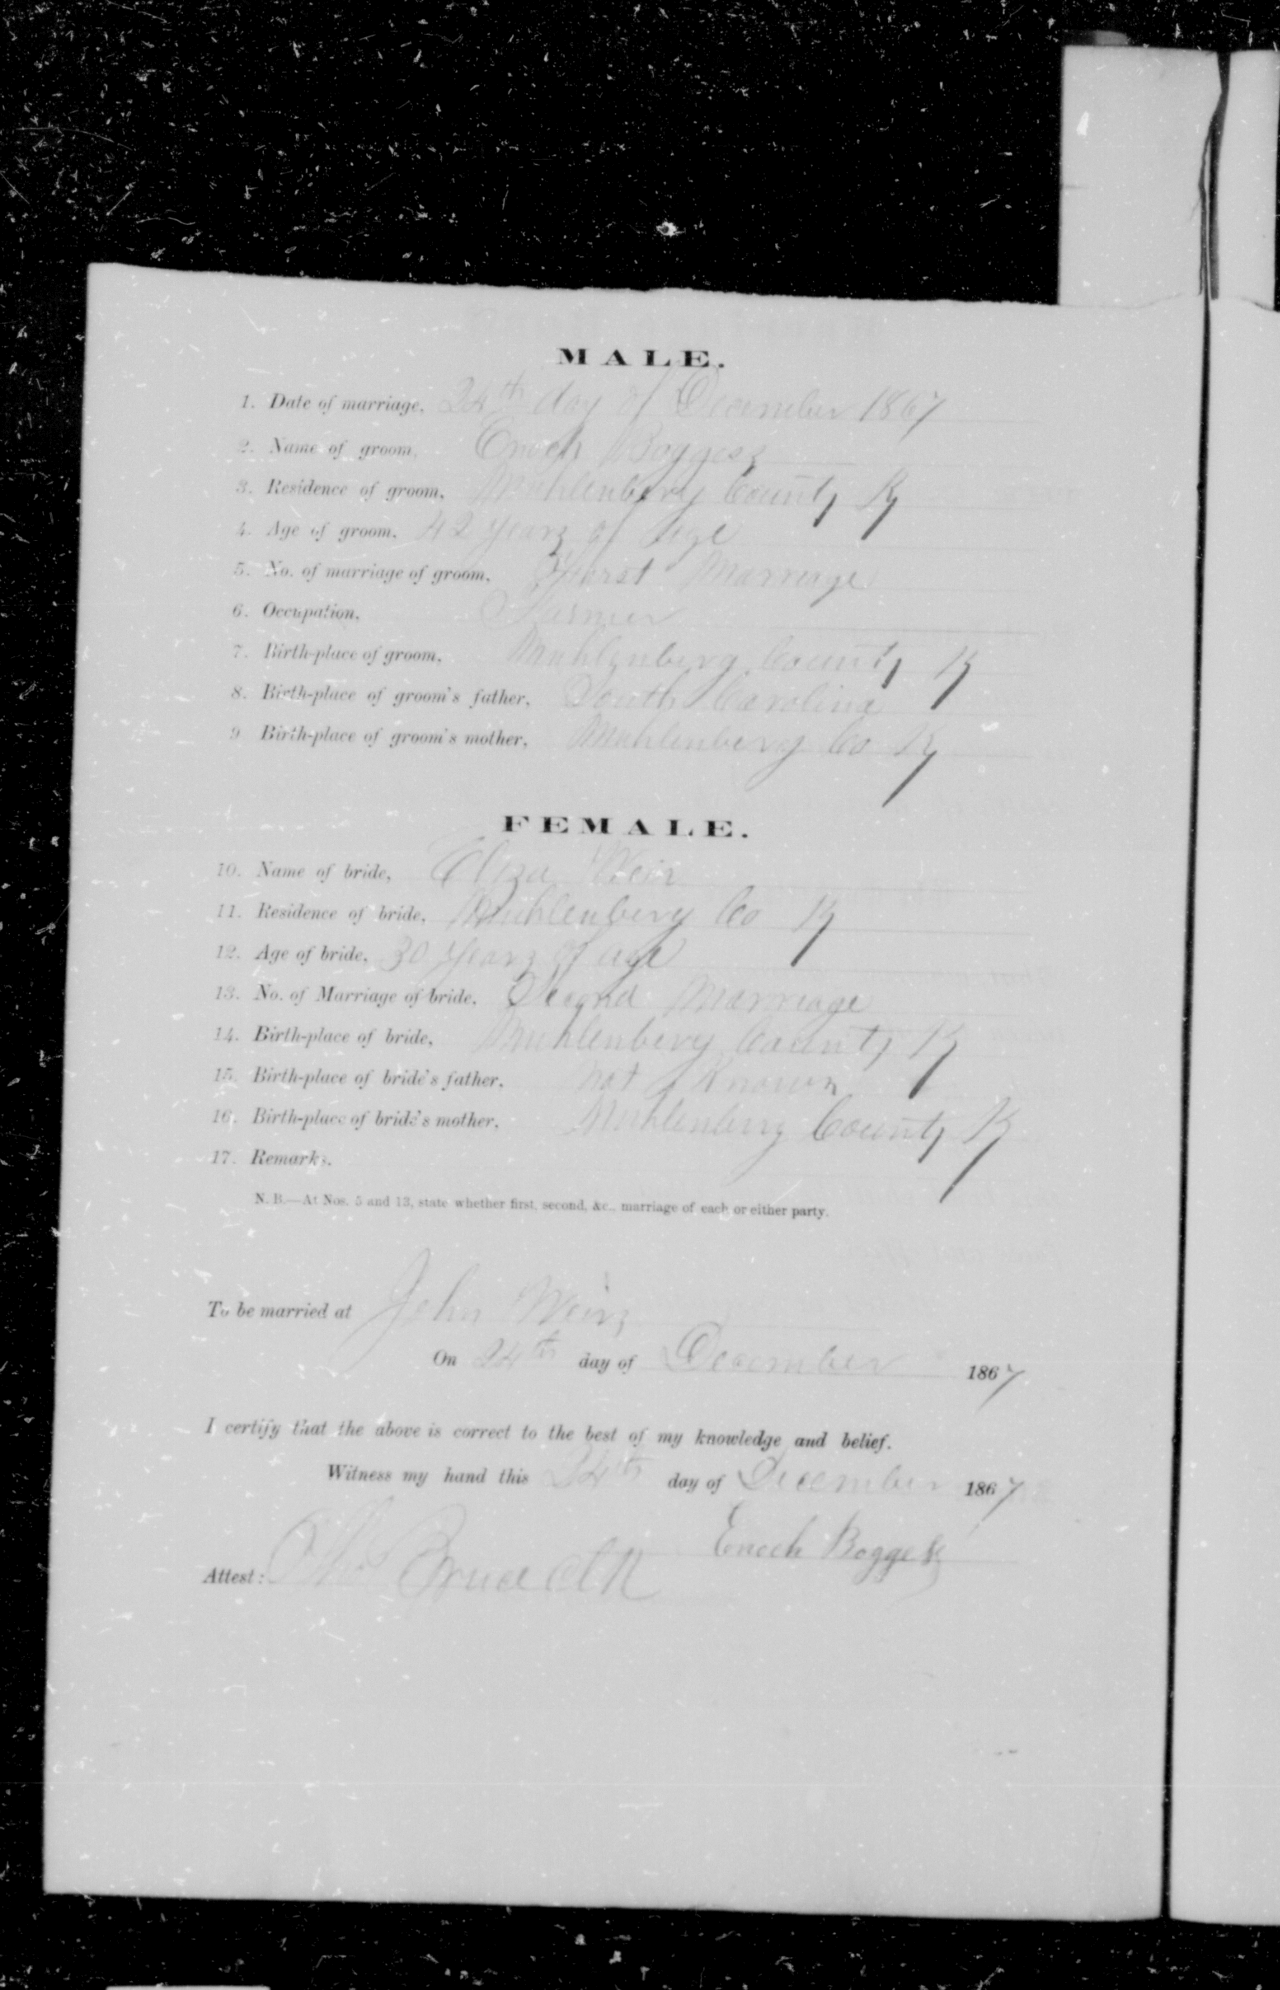 MALE.
1. Date of marriage, 24th day of December 1867
2. Name of groom, Enoch Boggess
3. Residence of groom, Muhlenberg County Ky
4. Age of groom, 42 years of age
5. No. of marriage of groom, First Marriage
6. Occupation, Farmer
7. Birth-place of groom, Muhlenberg County Ky
8. Birth-place of groom's father, South Carolina
9 Birth-place of groom's mother, Muhlenberg Co Ky
FEMALE.
10. Name of bride, Eliza Weir
11. Residence of bride, Muhlenberg Co Ky
12. Age of bride, 30 years of age
13. No. of Marriage of bride, Second Marriage
14. Birth-place of bride, Muhlenberg County Ky
15. Birth-place of bride's father, Not Known
16. Birth-place of bride's mother, Muhlenberg County Ky
17. Remarks.
N. B.—At Nos. 5 and 13, state whether first, second, &c., marriage of each or either party.
To be married at John Weirs
On 24th day of December 1867
I certify that the above is correct to the best of my knowledge and belief.
Witness my hand this 24th day of December 1867
Enoch Boggess
Attest: Tho Bruce